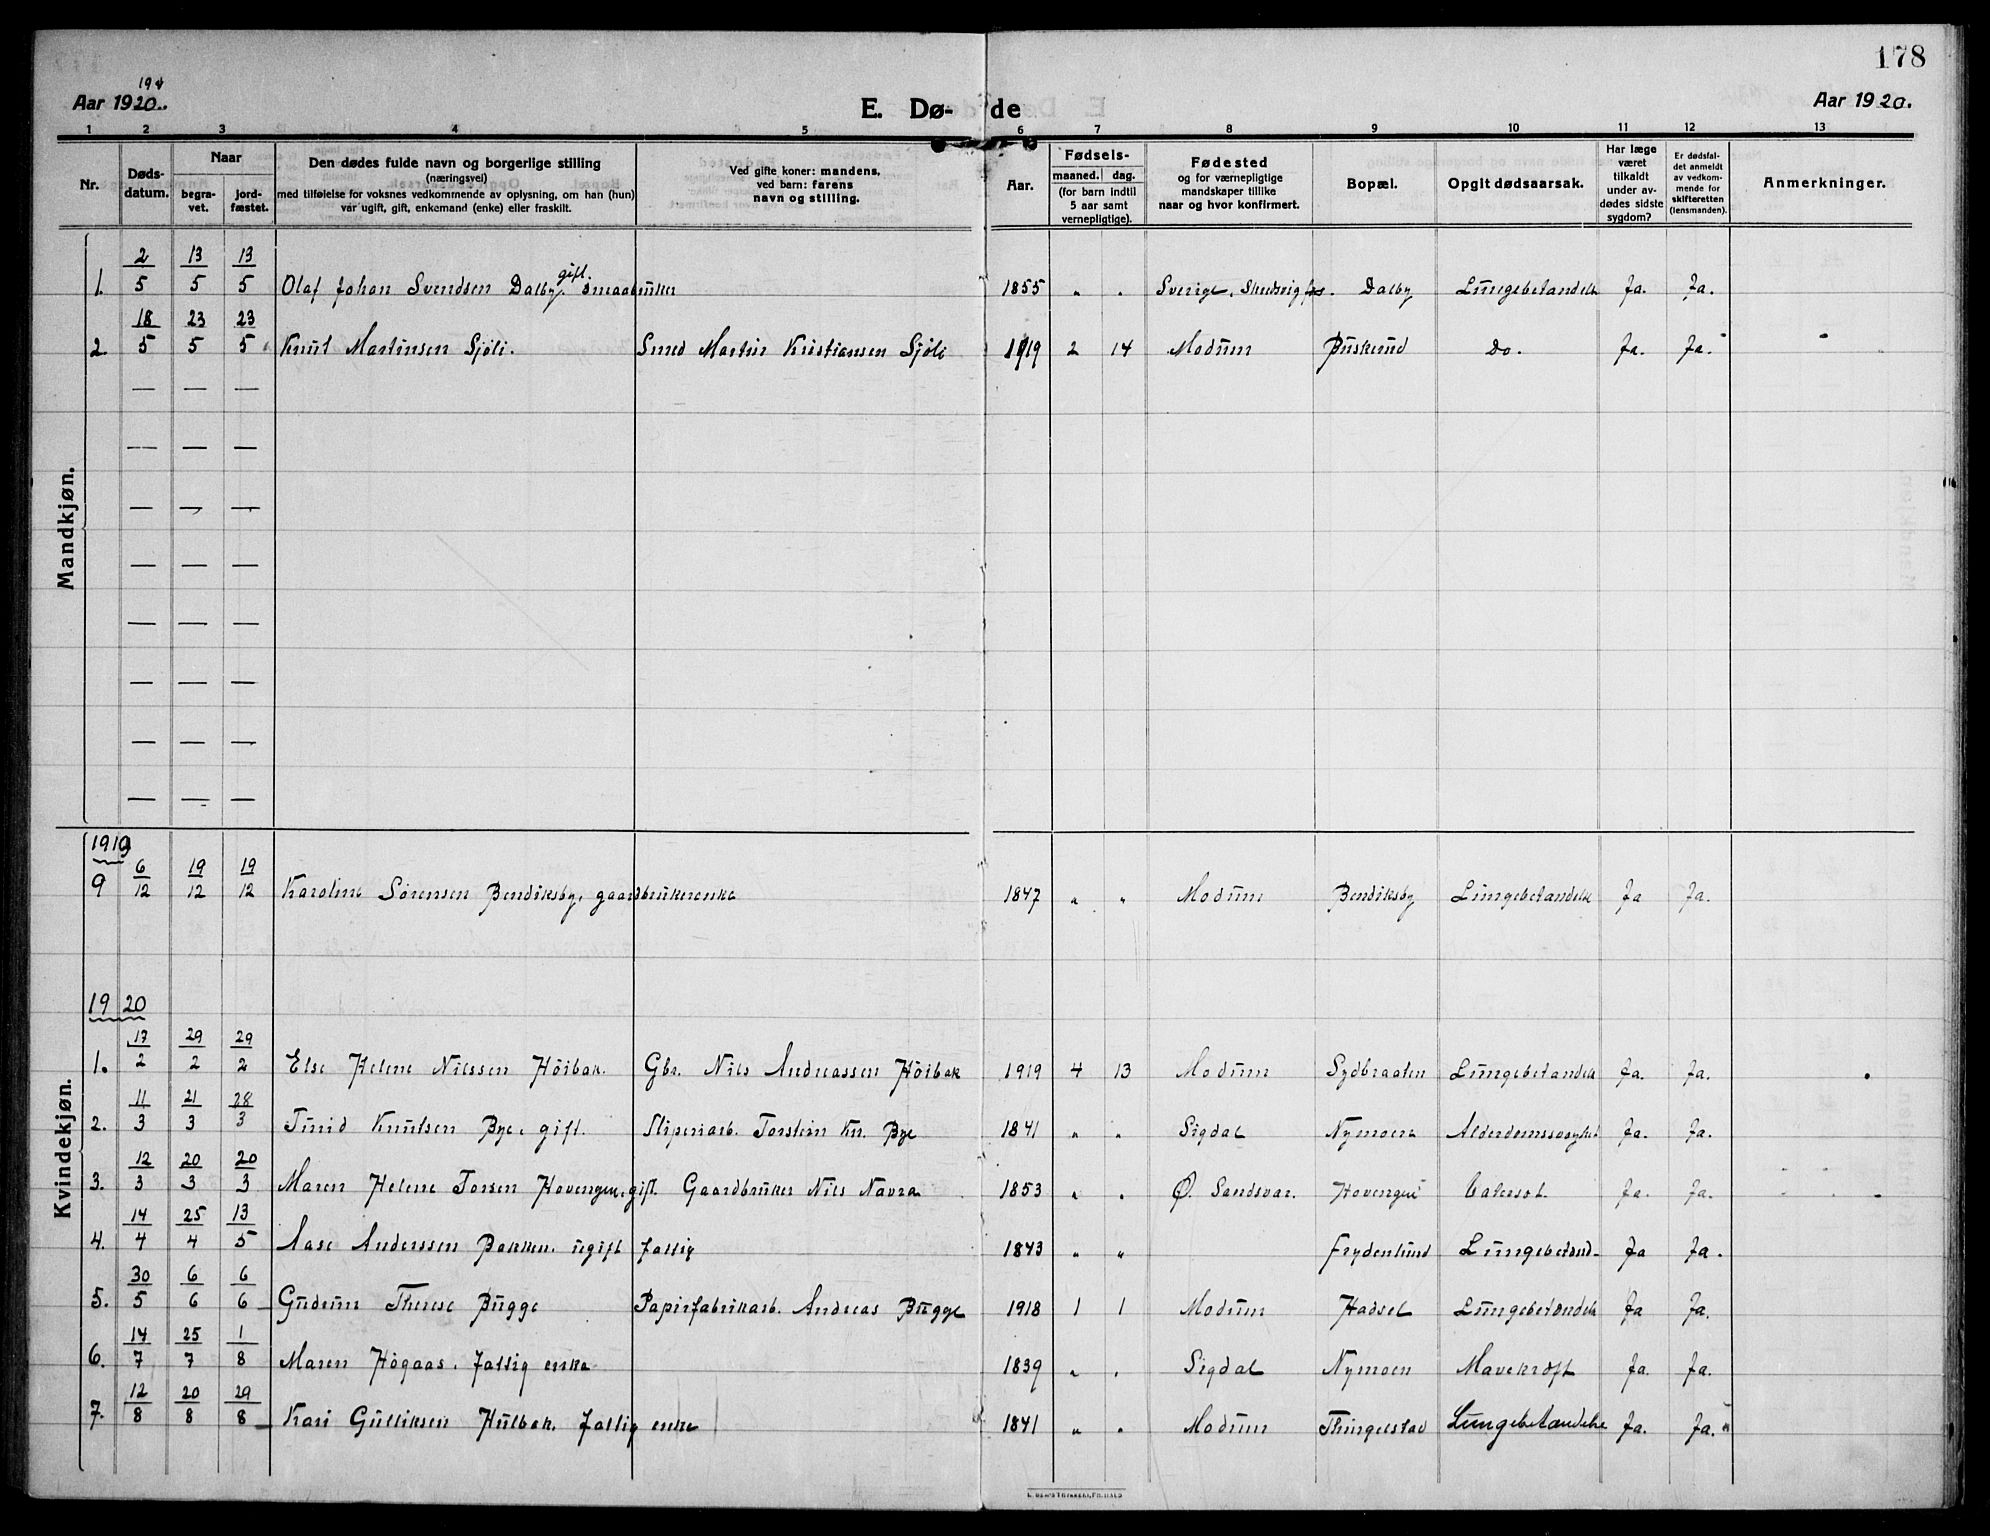 178
194
Aar 1920. E. Dø- de Aar 1920.
1 2 3 4 5 6 7 8 9 10 11 12 13
Nr. Døds-datum. Naar begra-vet. jord-fæstet. Den dødes fulde navn og borgerlige stilling (næringsvei) med tilføielse for voksnes vedkommende av oplysning, om han (hun) var ugift, gift, enkemand (enke) eller fraskilt. Ved gifte koner: mandens, ved barn: farens navn og stilling. Aar. Fødsels- maaned. dag. (for barn indtil 5 aar samt vernepligtige). Fødested og for værnepligtige mandskaper tillike naar og hvor konfirmert. Bopæl. Opgit dødsaarsak. Har læge været tilkaldt under av-dødes sidste sygdom? Er dødsfal-det anmeldt av vedkom-mende for skifteretten (lensmanden). Anmerkninger.
Mandkjøn.
1. 2/5 13/5 13/5 Olaf Johan Svendsen Dalby. gift. Smaabruker 1855 " " Sverige, Dalby Lungebetændelse Ja. Ja.
2. 18/5 23/5 23/5 Knut Martinsen Sjöli. Smed Martin Kristiansen Sjöli 1919 2 14 Modum Buskerud Do. Ja. Ja.
— — —
— — —
— — —
— — —
— — —
— — —
— — —
— — —
Kvindekjøn.
1919
9 6/12 19/12 19/12 Karoline Sørensen Bendiksby, gaardbrukerenke 1847 " " Modum Bendiksby Lungebetændelse Ja Ja.
1920
1. 17/2 29/2 29/2 Else Helene Nilssen Höibak. Gbr. Nils Andreassen Höibak 1919 4 13 Modum Sydbraaten Lungebetændelse Ja. Ja.
2. 11/3 21/3 28/3 Turid Knutsen Bye, gift. Sliperiarb. Torstein Kn. Bye 1841 " " Sigdal Nymoen Alderdomssvækket Ja. Ja.
3. 12/3 20/3 20/3 Maren Helene Torsen Hovengen, gift. Gaardbruker Nils Navra 1853 " " Ø. Sandsvær. Hovengen Ja. Ja.
4. 14/4 25/4 13/5 Aase Anderssen Bakken. ugift fattig 1843 " " Frydenlund Lungebetænd- Ja Ja.
5. 30/5 6/6 6/6 Gudrun Therese Bugge Papirfabrikarb. Andreas Bugge 1918 1 1 Modum Hadsel Lungebetændelse Ja Ja.
6. 14/7 25/7 1/8 Maren Högaas. fattig enke 1839 " " Sigdal Nymoen Mavekræft Ja. Ja.
7. 12/8 20/8 29/8 Kari Gulliksen Hulbak. fattig enke 1841 " " Modum Thingelstad Lungebetændelse Ja. Ja.